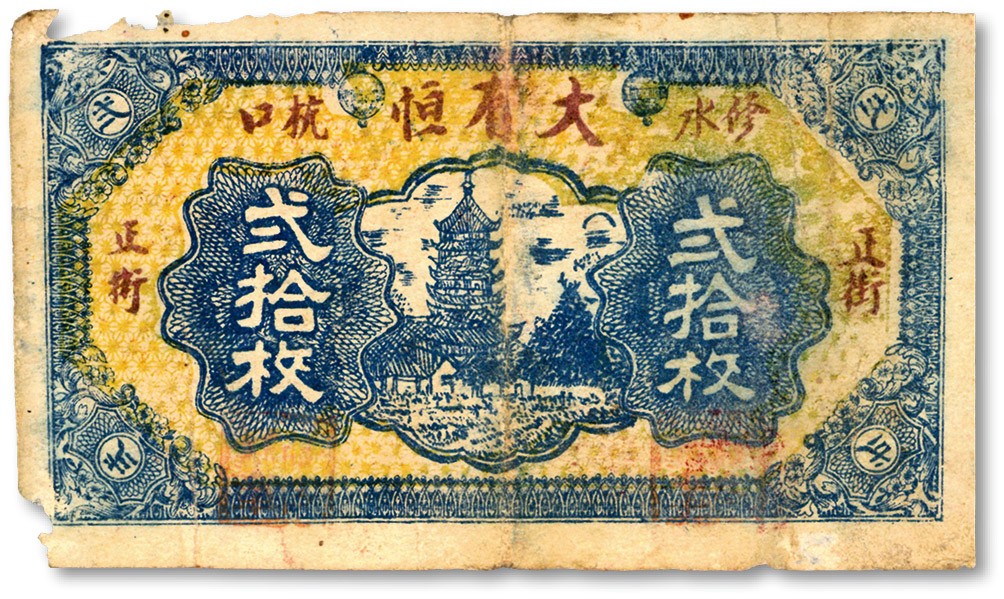 修水 大有恒 杭口
正街
弍拾枚
弍拾枚
正街
弍